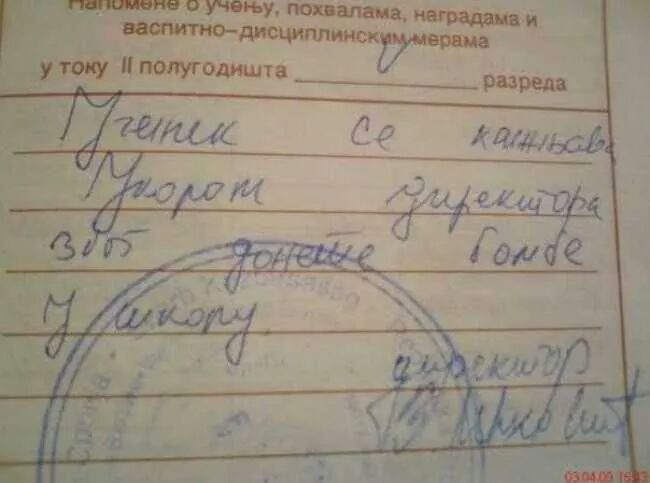 Напомене о учењу, похвалама, наградама и
васпитно-дисциплинским мерама
у току II полугодишта V разреда
Ученик се кажњава
Укором директора
због донете бомбе
у школу.
директор
03.04.09